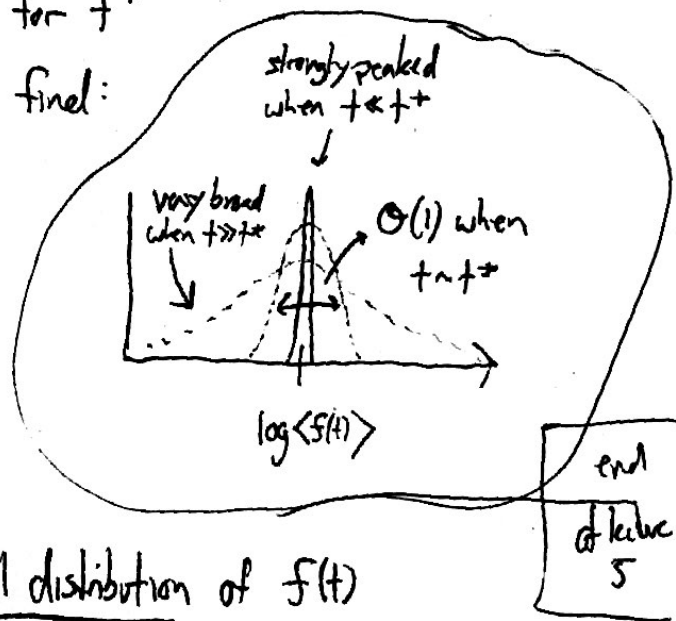 for t
find:
strongly peaked
when t ≪ t*
very broad
when t≫t*
O(1) when
t ~ t*
log<f(t)>
end
of lecture
5
distribution of f(t)